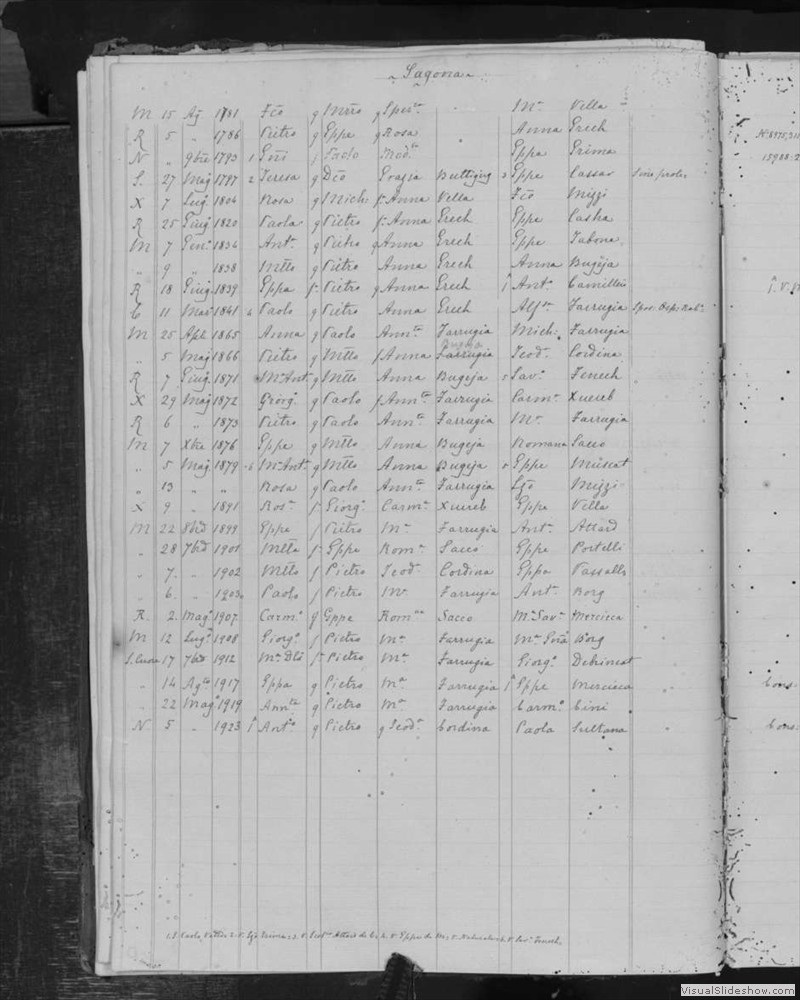 Sagona
M 15 Ag 1781 Fco g Mtro g Sper.ta M.a Vella
R 5 " 1786 Pietro g Eppe g Rosa Anna Grech
N " 9bre 1793 1 Paolo Teod.ta Eppa Grima
S. 27 Mag 1797 2 Teresa g Dco Grazia Buttigieg 3 Eppe Cassar Sine prole
X 7 Lug 1804 Rosa g Mich f. Anna Vella Fco Mizzi
R 25 Giug 1820 Paola g Pietro f. Anna Grech Eppe Casha
M 7 Gen 1834 Ant. g Pietro g Anna Grech Eppa Tabona
" 9 " 1838 Mtteo g Pietro Anna Grech Anna Bugeja
R 18 Giug 1839 Eppa f. Pietro g Anna Grech Ant. Camilleri
C 11 Mar 1841 4 Paolo g Pietro Anna Grech Alf.sa Farrugia
M 25 Apl 1865 Anna g Paolo Ann.ta Farrugia Mich: Farrugia
" 5 Mag 1866 Pietro g Mtteo f Anna Farrugia Bugeja Teod. Cordina
R 7 Giug 1871 M.a Ant. g Mtteo Anna Bugeja 5 Sav. Fenech
X 29 Mag 1872 Giorg. g Paolo f Ann.ta Farrugia Carm. Xuereb
R 6 " 1873 Pietro g Paolo Ann.ta Farrugia M.a Farrugia
M 7 Xbre 1876 Eppe g Mtteo Anna Bugeja Romana Sacco
" 5 Mag 1879 6 M.a Ant. g Mtteo Anna Bugeja Eppe Muscat
" 13 " " Rosa g Paolo Ann.ta Farrugia Mizzi
X 9 " 1891 Ros. f. Giorg. Carm. Xuereb Eppe Vella
M 22 8bre 1899 Eppe f Pietro M.a Farrugia Ant. Attard
" 28 7bre 1901 Mtteo f. Eppe Rom.a Sacco Eppa Portelli
" 7 " 1902 Mtteo f Pietro Teod. Cordina Eppa Vassallo
" 6 " 1903 Paolo f Pietro M.a Farrugia Ant. Borg
R. 2 Mag. 1907 Carm. g Eppe Rom.na Sacco M.a Sav. Mercieca
M 12 Lug. 1908 Giorg. f Pietro M.a Farrugia Borg
S. Cuore 17 7bre 1912 f. Pietro M.a Farrugia Giorg. Debrincat
" 14 Ag.to 1917 Eppa g Pietro M.a Farrugia Eppe Mercieca
" 22 Mag. 1919 Ann.ta g Pietro M.a Farrugia Carm. Cini
N 5 " 1923 Ant. g Pietro g Teod. Cordina Paola Sultana
Cons.
Cons.
VisualSlideshow.com